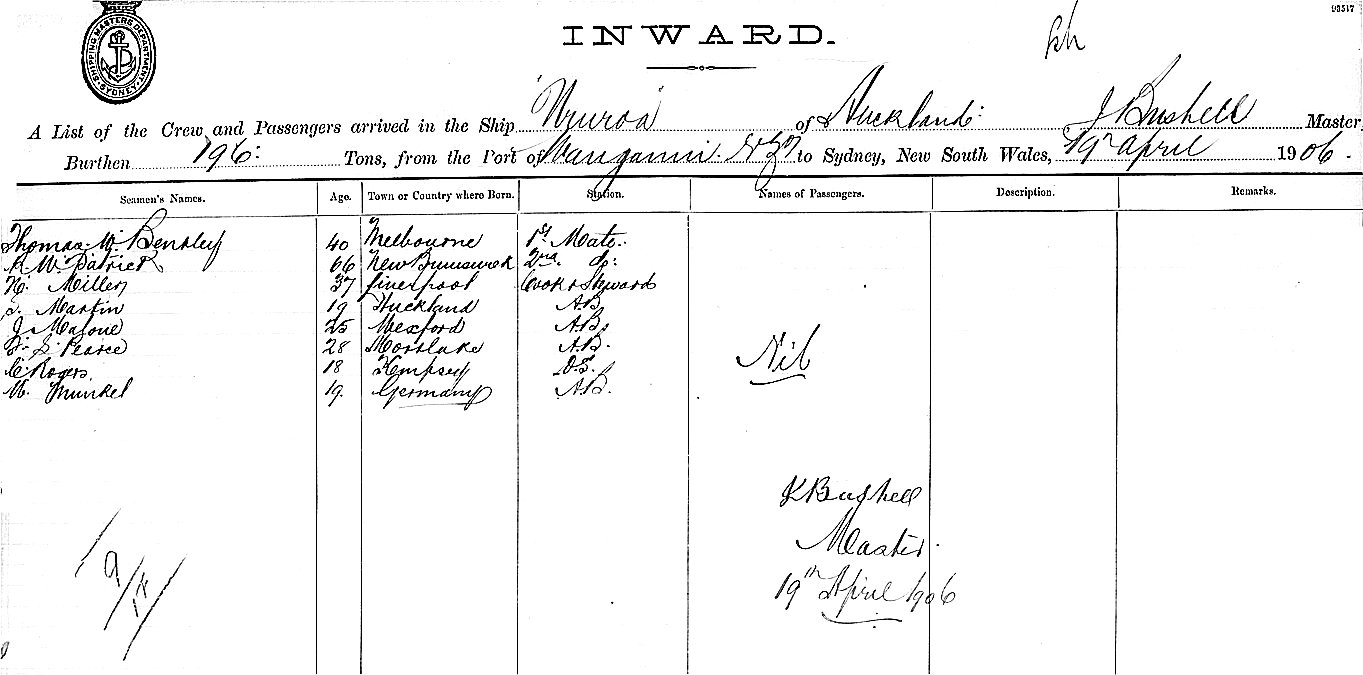 93517
INWARD.
SHIPPING MASTERS DEPARTMENT. SYDNEY
A List of the Crew and Passengers arrived in the Ship of Auckland: J Bushell Master
Burthen 196: Tons, from the Port of Wanganui N.Z. to Sydney, New South Wales, 19th April 1906.
Seamen's Names. Age. Town or Country where Born. Station. Names of Passengers. Description. Remarks.
Thomas W. Bensley 40 Melbourne 1st Mate.
McPatrick 66 New Brunswick 2nd do:
Miller 37 Liverpool Cook & Steward
Martin 19 Auckland A.B.
J. Malone 25 Wexford A.B.
S. Pearce 28 Mortlake A.B.
C. Rogers. 18 Kempsey O.S.
Munkel 19. Germany A.B.
Nil
Bushell
Master.
19th April 1906